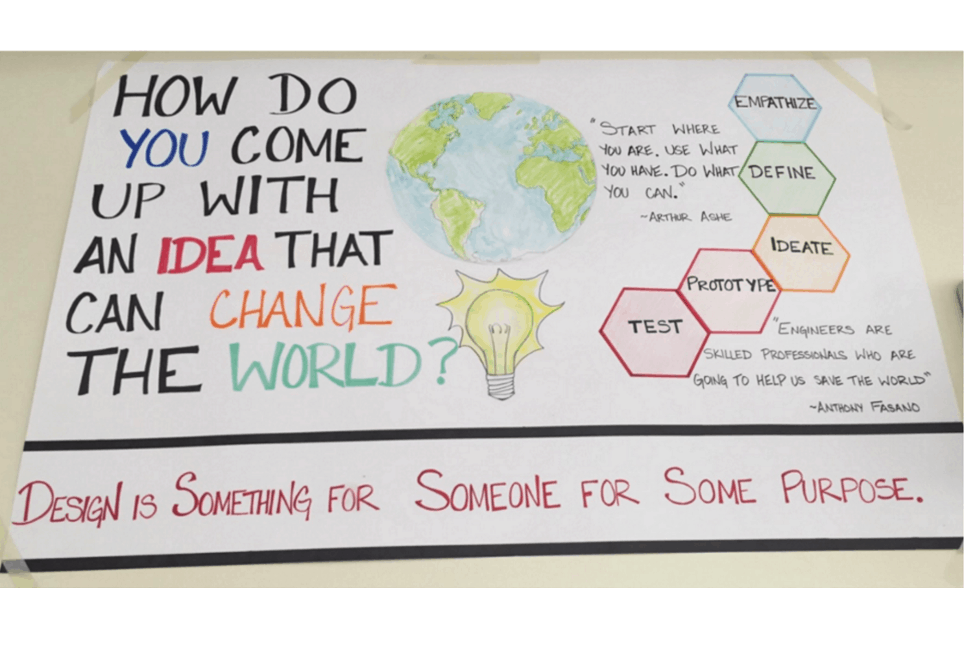 HOW DO
YOU COME
UP WITH
AN IDEA THAT
CAN CHANGE
THE WORLD?
"START WHERE
YOU ARE. USE WHAT
YOU HAVE. DO WHAT
YOU CAN."
~ARTHUR ASHE
EMPATHIZE
DEFINE
IDEATE
PROTOTYPE
TEST
"ENGINEERS ARE
SKILLED PROFESSIONALS WHO ARE
GOING TO HELP US SAVE THE WORLD"
~ANTHONY FASANO
DESIGN IS SOMETHING FOR SOMEONE FOR SOME PURPOSE.